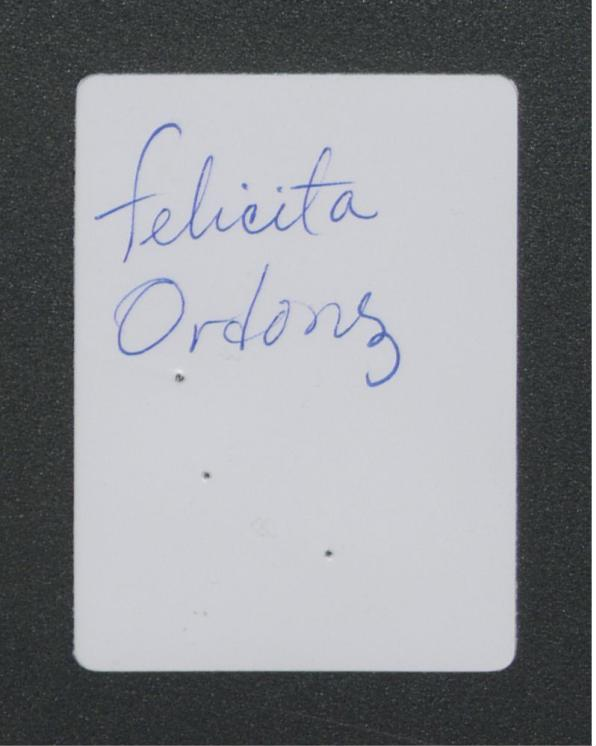 Felicita
Ordonz